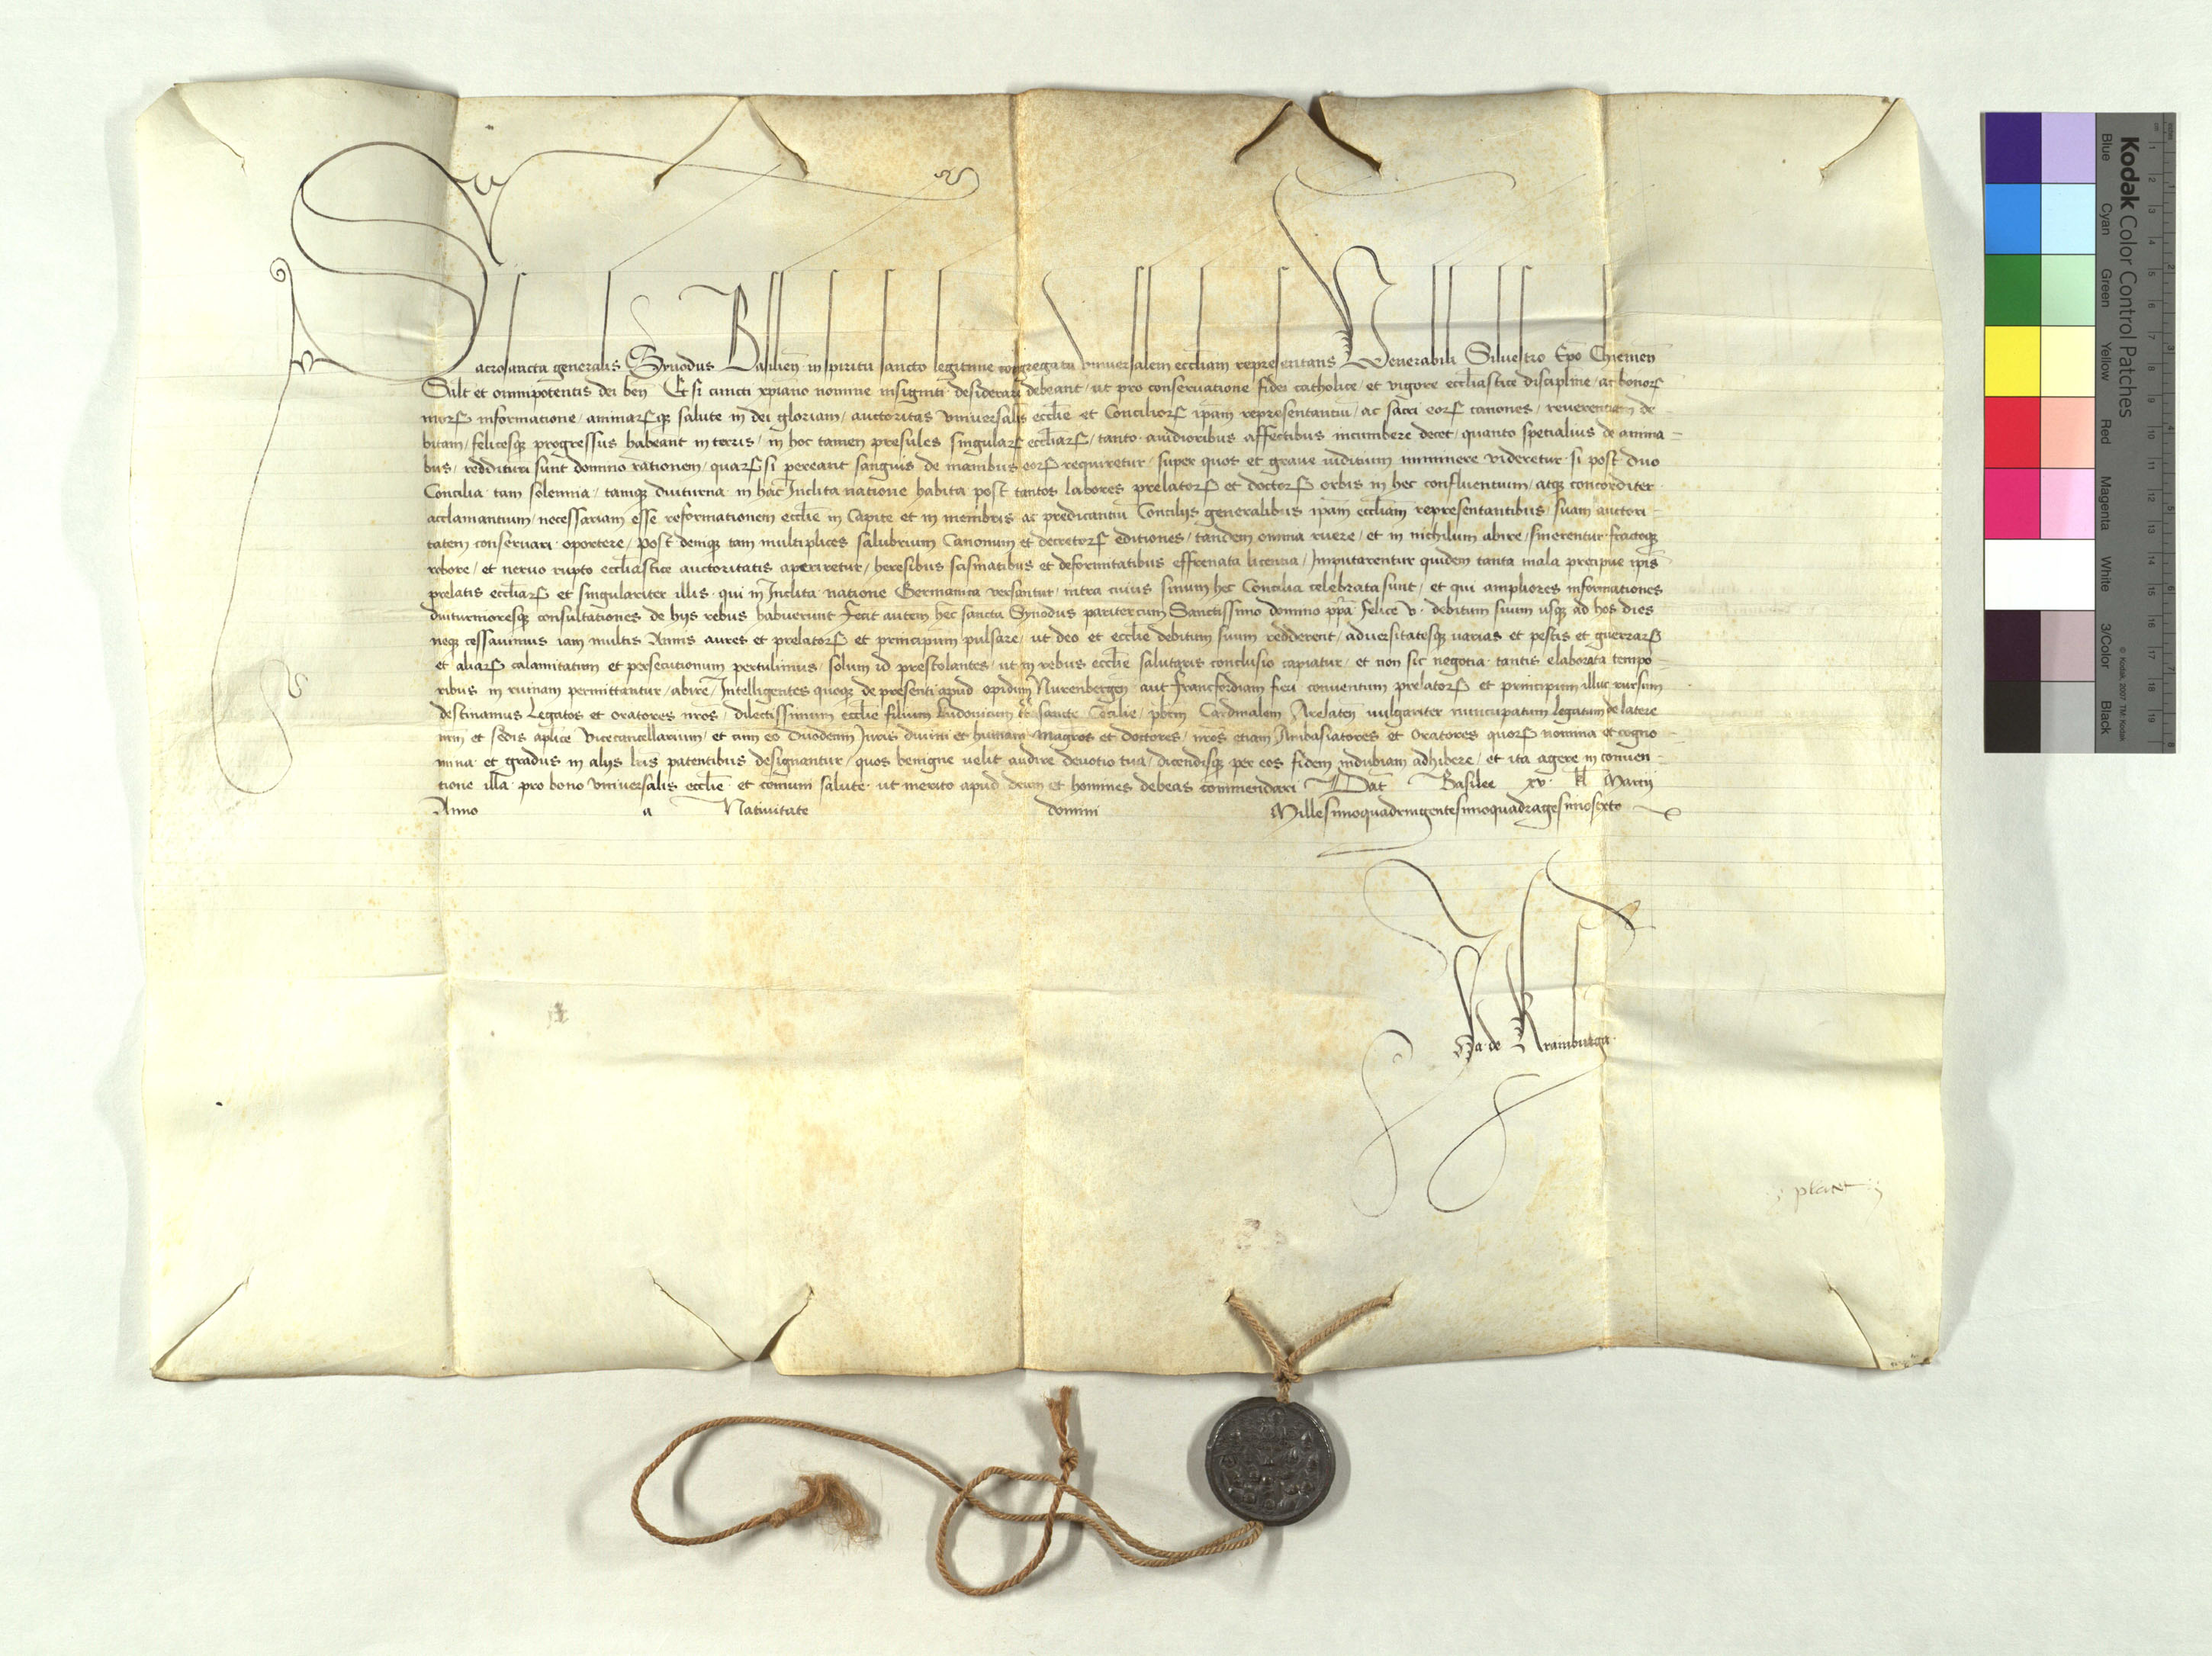 Sacrosancta generalis Synodus Basilien̄ in spiritu sancto legitime congregata vniuersalem eccl̄iam representans Venerabili Siluestro Ep̄o Chiemen̄
Salt̄ et omnipotentis dei ben̄ Et si cuncti xp̄iano nomine insigniti desiderare debeant / ut pro conseruatione fidei catholice / et vigore eccl̄iastice discipline / ac bonoꝝ
moꝝ informatione / animaꝝqꝫ salute in dei gloriam / auctoritas vniuersalis eccl̄ie et Concilioꝝ ip̄am representantiū / ac sacri eoꝝ canones / reuerentiam de
bitam / felicesqꝫ progressus habeant in terris / in hoc tamen presules singulaꝝ eccl̄iaꝝ / tanto auidioribus affectibus incumbere decet / quanto spetialius de anima =
bus / reddituri sunt domino rationem / quaꝝ si pereant sanguis de manibus eoꝝ requiretur / super quos et graue iuditium imminere videretur si post duo
Concilia tam solemnia / tamqꝫ diuturna in hac Inclita natione habita post tantos labores prelatoꝝ et doctoꝝ orbis in hec confluentium / atqꝫ concorditer
acclamantium / necessariam esse reformationem eccl̄ie in Capite et in membris ac predicantiū Concilijs generalibus ip̄am eccl̄iam representantibus suam auctori -
tatem conseruari oportere / post deniqꝫ tam multiplices salubrium Canonum et decretoꝝ editiones / tandem omnia ruere / et in nichilum abire / sinerentur fractoqꝫ
robore / et neruo rupto eccl̄iastice auctoritatis aperiretur / heresibus scismatibus et deformitatibus effrenata licentia / Imputarentur quidem tanta mala precipue ip̄is
prelatis eccl̄iaꝝ et singulariter illis qui in Inclita natione Germanica versantur / intra cuius sinum hec Concilia celebrata sunt / et qui ampliores informationes
diuturnioresqꝫ consultationes de hijs rebus habuerunt Fecit autem hec sancta Synodus pariter cum Sanctissimo domino pp̄a Felice v. debitum suum usqꝫ ad hos dies
neqꝫ cessauimus iam multis Annis aures et prelatoꝝ et principum pulsare / ut deo et eccl̄ie debitum suum redderent / aduersitatesqꝫ uarias et pestis et guerraꝝ
et aliaꝝ calamitatum et persecutionum pertulimus / solum id prestolantes / ut in rebus eccl̄ie salutaris conclusio capiatur / et non sic negotia tantis elaborata tempo =
ribus in ruinam permittantur / abire / Intelligentes quoqꝫ de presenti apud opidum Nurenbergen̄ aut Franckfordiam fieri conuentum prelatoꝝ et principum illuc rursum
destinamus Legatos et oratores nr̄os / dilectissimum eccl̄ie filium Ludouicum tt̄ sancte Cecilie / pb̄rm Cardinalem Arelaten̄ uulgariter nuncupatum Legatum de latere
nr̄m et sedis ap̄lice Vicecancellarium / et cum eo Duodecim Iuris diuini et humani magr̄os et doctores / nr̄os etiam Ambasiatores et Oratores quoꝝ nomina et cogno
mina et gradus in alijs lr̄is patentibus designantur / quos benigne uelit audire deuotio tua / dicendisqꝫ per eos fidem indubiam adhibere / et ita agere in conuen -
tione illa pro bono vniuersalis eccl̄ie et com̄uni salute ut merito apud deum et homines debeas commendari Dat̄ Basilee xv. kl̄ Martij
Anno a Natiuitate domini Millesimoquadringentesimoquadragesimosexto
Ja. de Krainburga.
placet
Kodak Color Control Patches
Blue Cyan Green Yellow Red Magenta White 3/Color Black
© Kodak, 2007 TM: Kodak